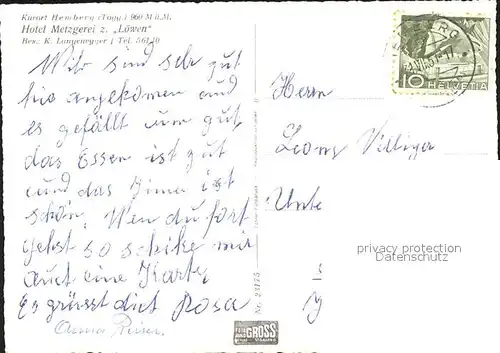 Kurort Hemberg (Togg.) 960 M ü.M.
Hotel Metzgerei z. „Löwen"
Bes.: K. Langenegger Tel. 561 10
Wir sind sehr gut
hir angekomen und
es gefällt um gut
das Essen ist gut
und das Zimer ist
schön. Wen du fort
gehst so schike mir
auch eine Karte
Es grüsst dich Rosa
Herrn
Leonz Villiger
Unte
10
HELVETIA
privacy protection
Datenschutz
GROSS